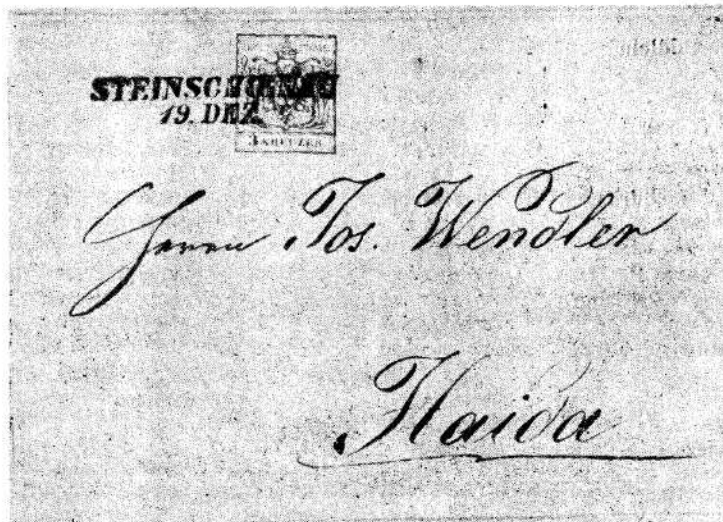 STEINSCHÖNAU
19. DEZ.
3 KREUZER
Herrn Jos. Wendler
Haida